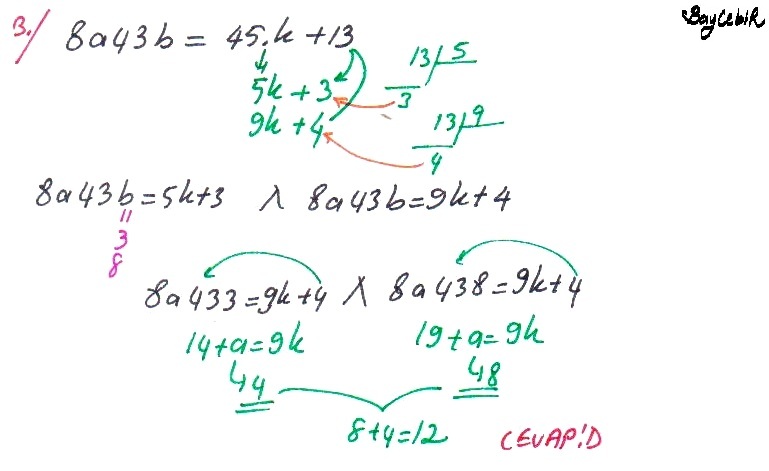 BayCebiR
3.) 8a43b = 45.k + 13
13 5
5k + 3
3
9k + 4
13 9
4
8a43b = 5k+3 ∧ 8a43b = 9k+4
=
3
8
8a433 = 9k+4 ∧ 8a438 = 9k+4
14+a=9k 19+a=9k
44 48
8+4=12 CEVAP:D